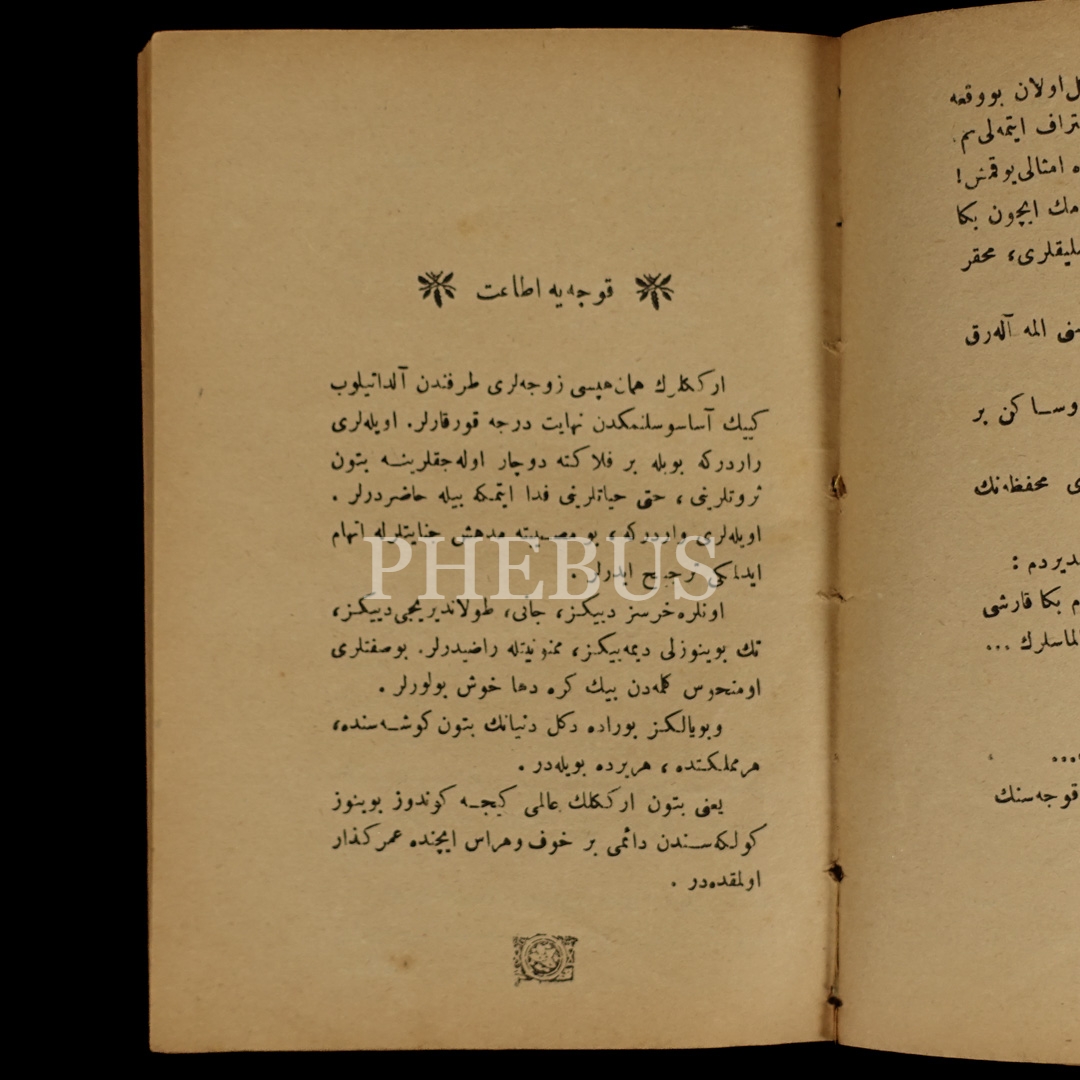 قوجه‌یه اطاعت
ارككلرك همان هپسی زوجه‌لری طرفندن آلداتیلوب
كییك آساسوسلنمكدن نهایت درجه قورقارلر. اویله‌لری
راردركه بویله بر فلاكته دوچار اوله‌جقلرینه بتون
ثروتلرینی، حتی حیاتلرینی فدا ایتمكه بیله حاضردرلر.
اویله‌لری واردركه، بو مصیبته مدهش جنایتلرله اتهام
ایدلمكی ترجیح ایدرلر.
اونلره خرسز دییكز، جانی، طولاندیریجی دییكز،
تك بوینوزلی دیمه‌ییكز، ممنونیتله راضیدرلر. بوصفتلری
اومنحوس كلمه‌دن بیك كره دها خوش بولورلر.
وبویالكز بوراده دكل دنیانك بتون كوشه‌سنده،
هرمملكتده، هریرده بویله‌در.
یعنی بتون ارككلك عالمی كیجه كوندوز بوینوز
كولكه‌سندن دائمی بر خوف وهراس ایچنده عمركذار
اولمقده‌در.
PHEBUS
اولان بووقعه
ایتمه‌لی‌یم.
امثالی یوقمش!
ایچون بكا
محقر
المه آله‌رق
وساكن بر
محفظه‌نك
بكا قارشی
...
...
قوجه‌سنك